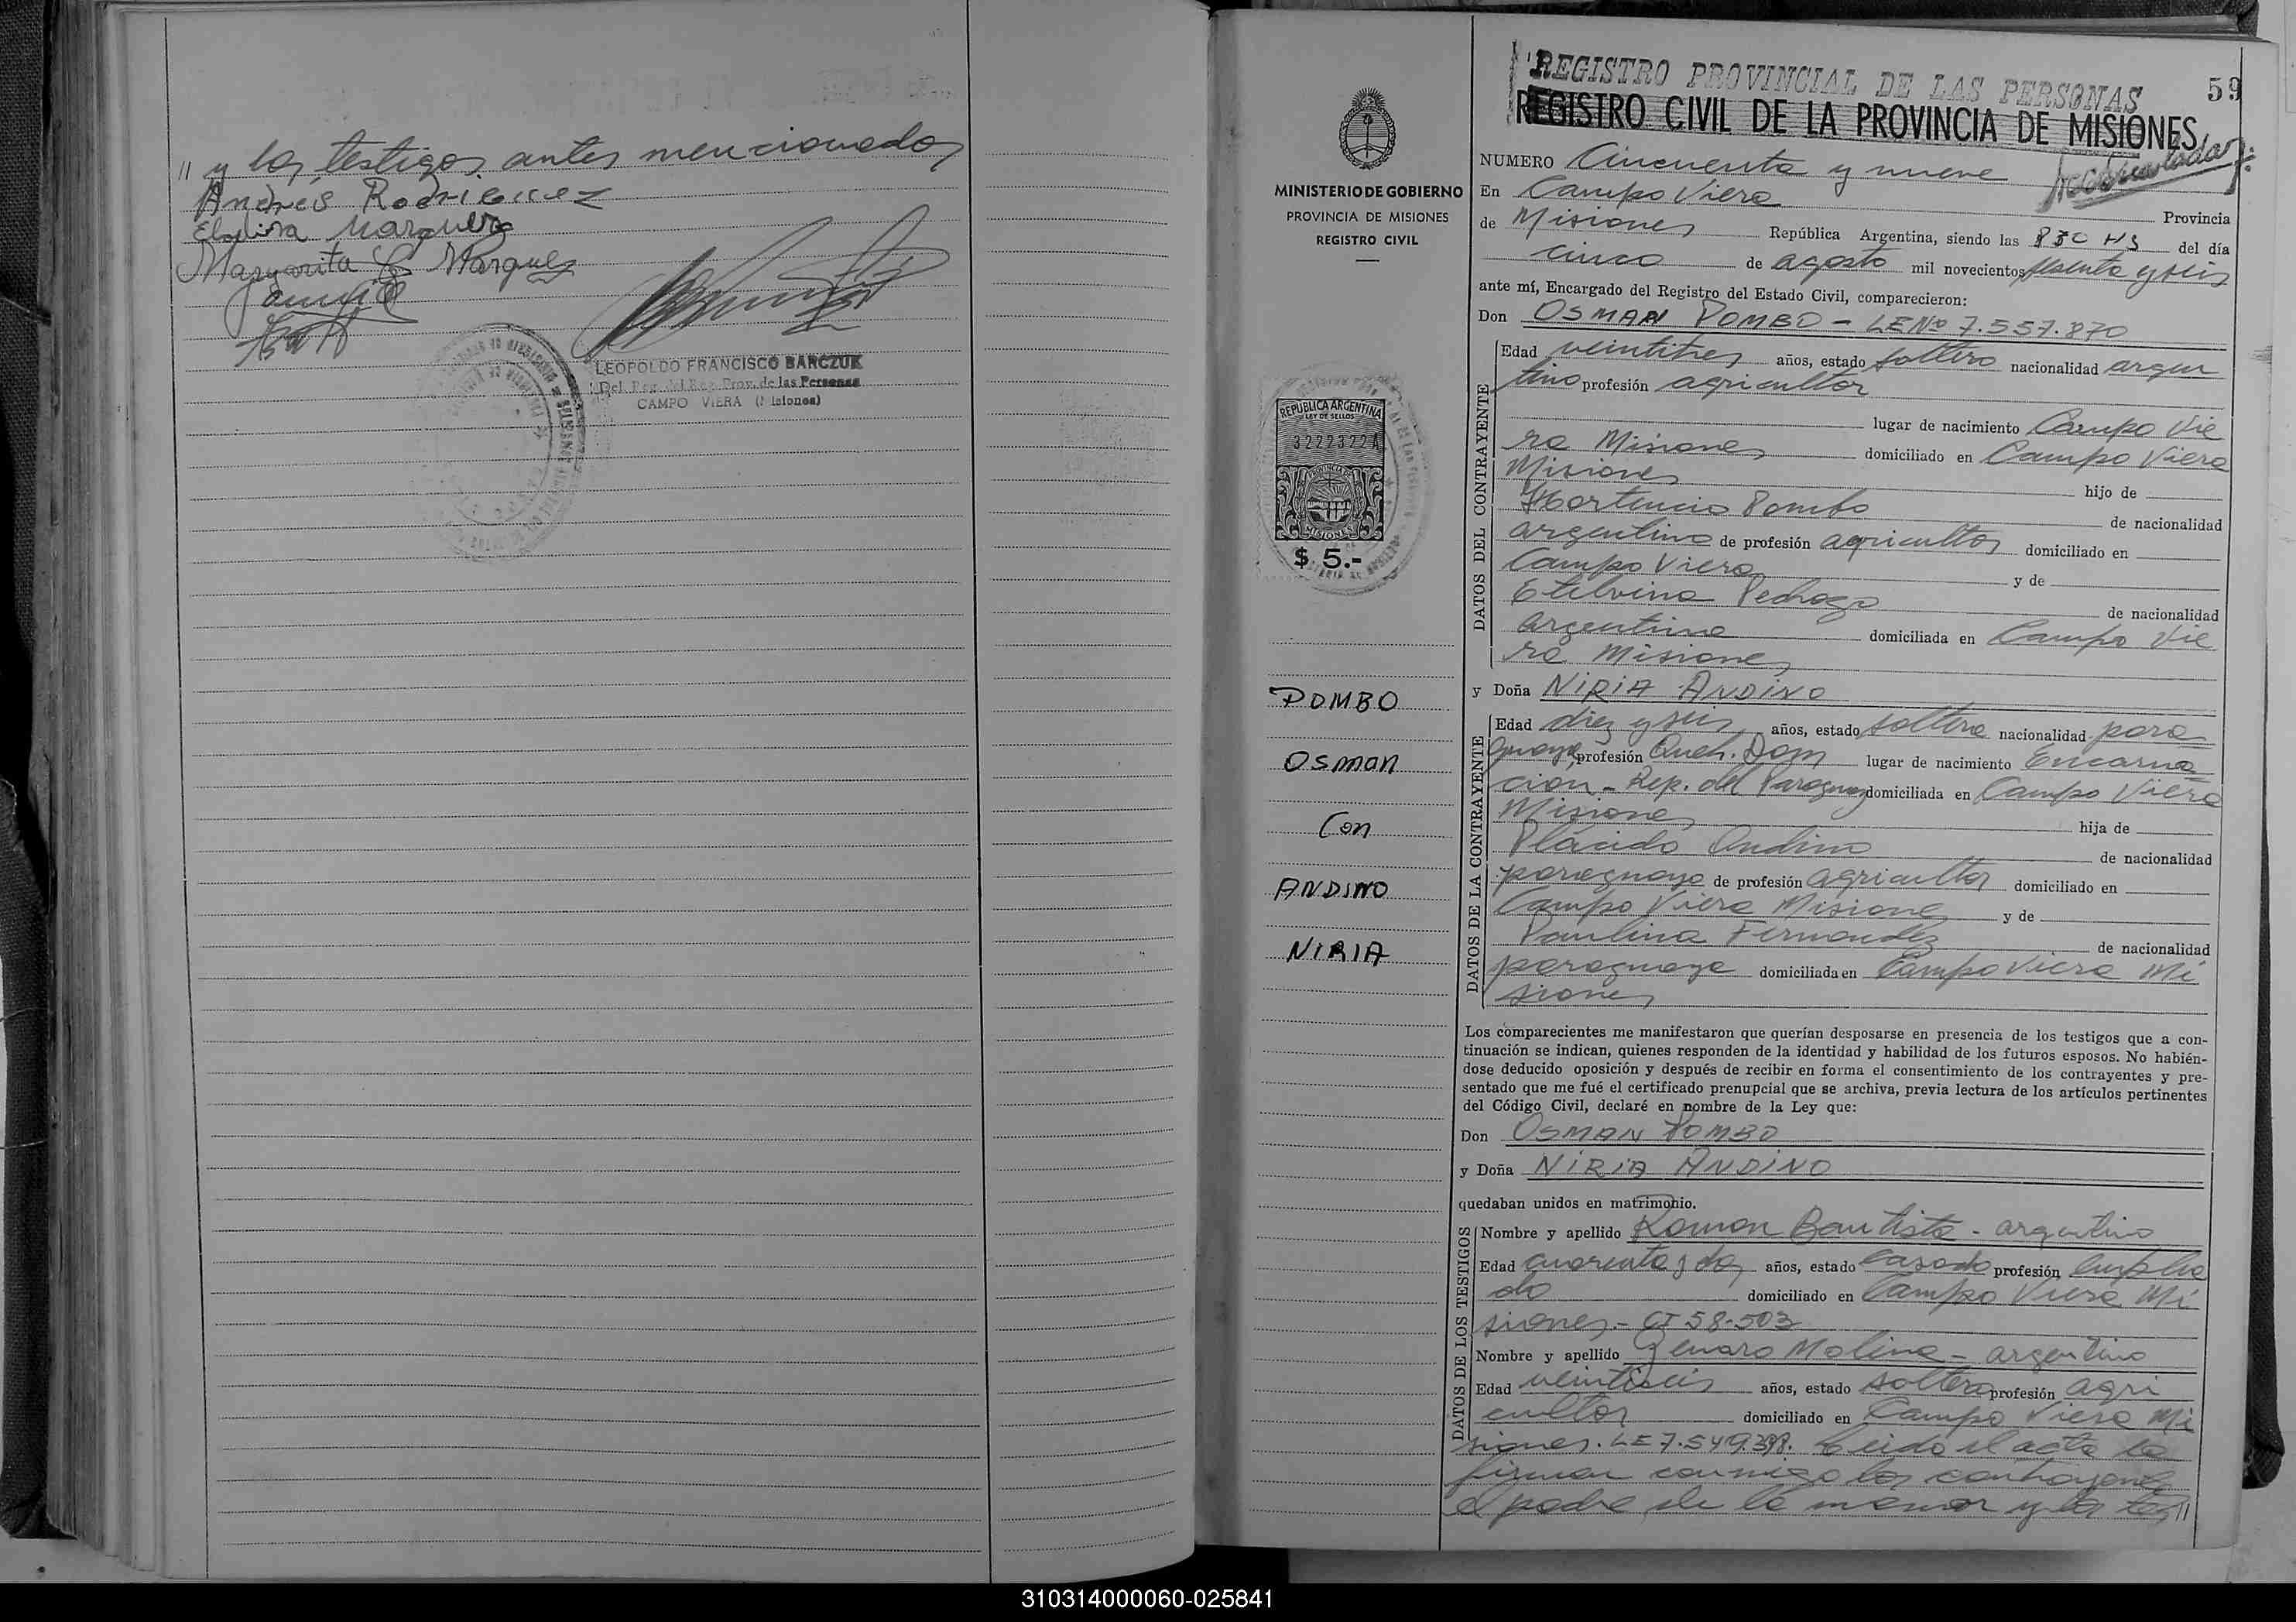 " y los testigos antes mencionados
Andrés Rodriguez
Margarita E. Marquez
LEOPOLDO FRANCISCO BARCZUK
Del. Reg. del Reg. Prov. de las Personas
CAMPO VIERA (Misiones)
MINISTERIO DE GOBIERNO
PROVINCIA DE MISIONES
REGISTRO CIVIL
REPUBLICA ARGENTINA
LEY DE SELLOS
3222322A
MISIONES
$ 5.-
POMBO
Osman
Con
ANDINO
NIRIA
REGISTRO PROVINCIAL DE LAS PERSONAS
59
REGISTRO CIVIL DE LA PROVINCIA DE MISIONES
NUMERO Cincuenta y nueve
En Campo Viera
Provincia
de Misiones República Argentina, siendo las 8 30 HS del día
cinco de agosto mil novecientos sesenta y seis
ante mí, Encargado del Registro del Estado Civil, comparecieron:
Don OSMAN POMBO - LE Nº 7.557.870
DATOS DEL CONTRAYENTE
Edad veintitres años, estado soltero nacionalidad argen
tino profesión agricultor
lugar de nacimiento Campo Vie
ra Misiones domiciliado en Campo Viera
Misiones hijo de
Hortencio Pombo de nacionalidad
argentino de profesión agricultor domiciliado en
Campo Viera y de
Etelvina Pedrozo de nacionalidad
argentina domiciliada en Campo Vie
ra Misiones
y Doña NIRIA ANDINO
DATOS DE LA CONTRAYENTE
Edad diez y seis años, estado soltera nacionalidad para
guaya profesión Queh. Dom lugar de nacimiento Encarna
ción - Rep. del Paraguay domiciliada en Campo Viera
Misiones hija de
Plácido Andino de nacionalidad
paraguayo de profesión agricultor domiciliado en
Campo Viera Misiones y de
Paulina Fernandez de nacionalidad
paraguaya domiciliada en Campo Viera Mi
siones
Los comparecientes me manifestaron que querían desposarse en presencia de los testigos que a con-
tinuación se indican, quienes responden de la identidad y habilidad de los futuros esposos. No habién-
dose deducido oposición y después de recibir en forma el consentimiento de los contrayentes y pre-
sentado que me fué el certificado prenupcial que se archiva, previa lectura de los artículos pertinentes
del Código Civil, declaré en nombre de la Ley que:
Don OSMAN POMBO
y Doña NIRIA ANDINO
quedaban unidos en matrimonio.
DATOS DE LOS TESTIGOS
Nombre y apellido Ramon Bautista - argentino
Edad cuarenta y dos años, estado casado profesión emplea
do domiciliado en Campo Viera Mi
siones - CI 58-503
Nombre y apellido Genaro Molina - argentino
Edad veintiseis años, estado soltero profesión agri
cultor domiciliado en Campo Viera Mi
siones. LE 7.549.398. Leida el acta la
firman conmigo los contrayentes
el padre de la menor y los tes "
310314000060-025841